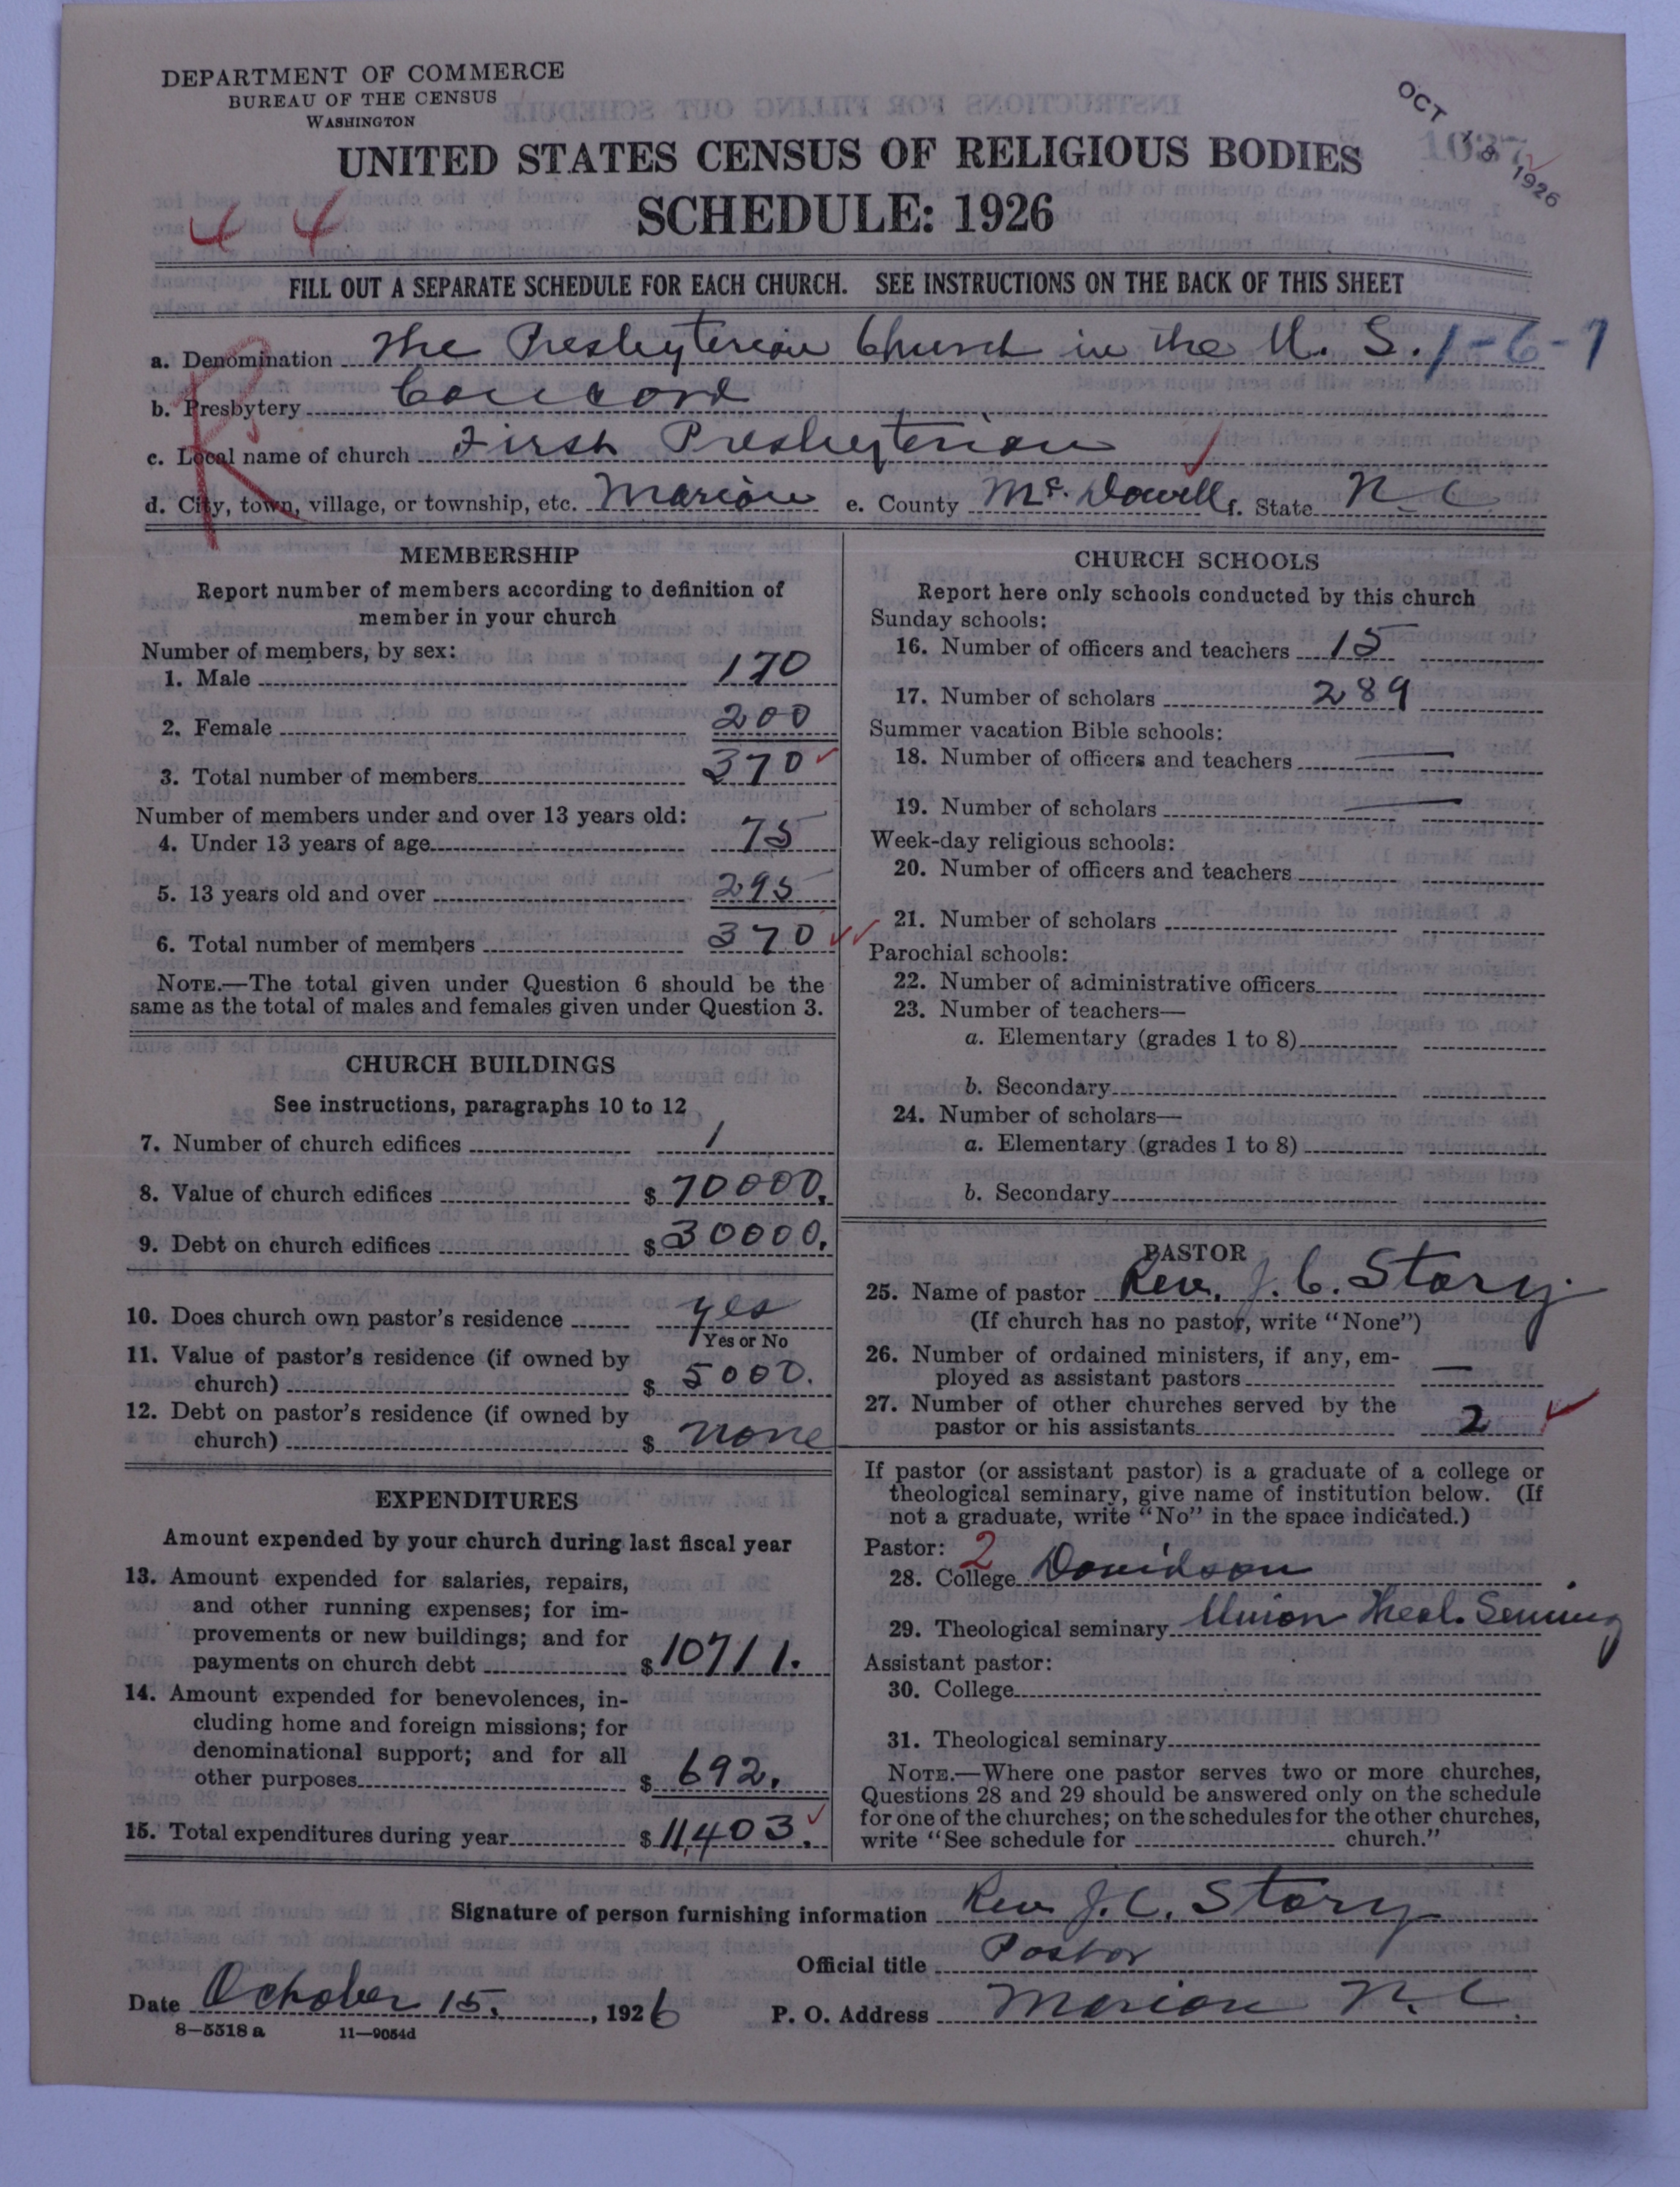 DEPARTMENT OF COMMERCE
BUREAU OF THE CENSUS
WASHINGTON
OCT 18 1926
1037
UNITED STATES CENSUS OF RELIGIOUS BODIES
SCHEDULE: 1926
4 4
FILL OUT A SEPARATE SCHEDULE FOR EACH CHURCH. SEE INSTRUCTIONS ON THE BACK OF THIS SHEET
R
a. Denomination The Presbyterian Church in the U. S. 1-6-7
b. Presbytery Concord
c. Local name of church First Presbyterian
d. City, town, village, or township, etc. Marion e. County Mc. Dowell f. State N C
MEMBERSHIP
Report number of members according to definition of
member in your church
Number of members, by sex:
1. Male 170
2. Female 200
3. Total number of members 370
Number of members under and over 13 years old:
4. Under 13 years of age 75
5. 13 years old and over 295
6. Total number of members 370
NOTE.—The total given under Question 6 should be the
same as the total of males and females given under Question 3.
CHURCH BUILDINGS
See instructions, paragraphs 10 to 12
7. Number of church edifices 1
8. Value of church edifices $ 70000.
9. Debt on church edifices $ 30000.
10. Does church own pastor's residence yes
Yes or No
11. Value of pastor's residence (if owned by
church) $ 5000.
12. Debt on pastor's residence (if owned by
church) $ none
EXPENDITURES
Amount expended by your church during last fiscal year
13. Amount expended for salaries, repairs,
and other running expenses; for im-
provements or new buildings; and for
payments on church debt $ 10711.
14. Amount expended for benevolences, in-
cluding home and foreign missions; for
denominational support; and for all
other purposes $ 692.
15. Total expenditures during year $ 11,403.
CHURCH SCHOOLS
Report here only schools conducted by this church
Sunday schools:
16. Number of officers and teachers 15
17. Number of scholars 289
Summer vacation Bible schools:
18. Number of officers and teachers —
19. Number of scholars —
Week-day religious schools:
20. Number of officers and teachers
21. Number of scholars
Parochial schools:
22. Number of administrative officers
23. Number of teachers—
a. Elementary (grades 1 to 8)
b. Secondary
24. Number of scholars—
a. Elementary (grades 1 to 8)
b. Secondary
PASTOR
25. Name of pastor Rev. J. C. Story
(If church has no pastor, write "None")
26. Number of ordained ministers, if any, em-
ployed as assistant pastors —
27. Number of other churches served by the
pastor or his assistants 2
If pastor (or assistant pastor) is a graduate of a college or
theological seminary, give name of institution below. (If
not a graduate, write "No" in the space indicated.)
Pastor: 2
28. College Davidson
29. Theological seminary Union Theol. Seminary
Assistant pastor:
30. College
31. Theological seminary
NOTE.—Where one pastor serves two or more churches,
Questions 28 and 29 should be answered only on the schedule
for one of the churches; on the schedules for the other churches,
write "See schedule for church."
Signature of person furnishing information Rev J. C. Story
Official title Pastor
Date October 15, , 1926 P. O. Address Marion N. C.
8—5518 a 11—9054d